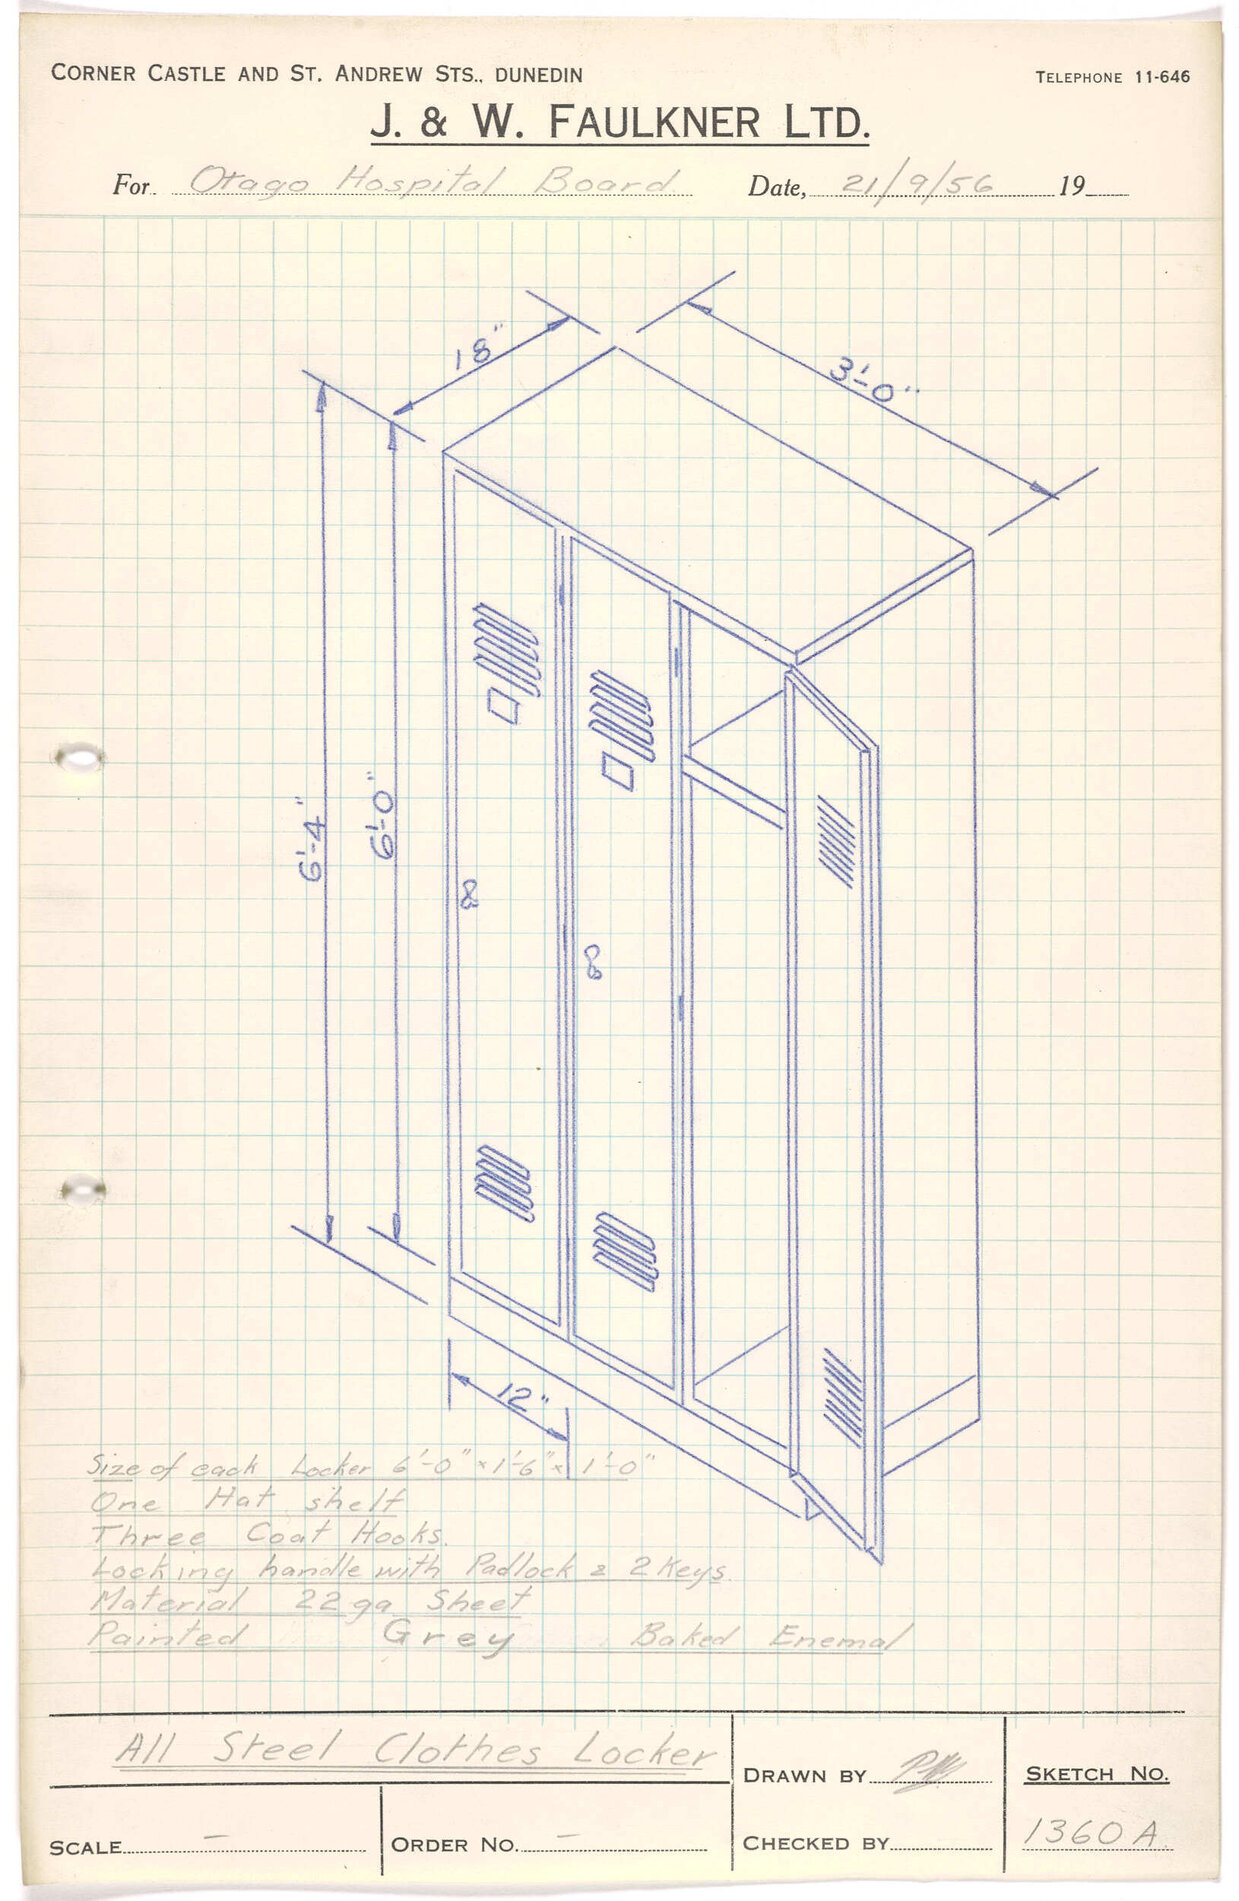 CORNER CASTLE AND ST. ANDREW STS., DUNEDIN
TELEPHONE 11-646
J. & W. FAULKNER LTD.
For Otago Hospital Board Date, 21/9/56 19
18"
3'-0"
6'-4"
6'-0"
12"
Size of each Locker 6'-0" x 1'-6" x 1'-0"
One Hat shelf
Three Coat Hooks.
Locking handle with Padlock & 2 Keys.
Material 22 ga Sheet
Painted Grey Baked Enemal
All Steel Clothes Locker
DRAWN BY
SKETCH NO.
1360 A.
SCALE –
ORDER NO. –
CHECKED BY